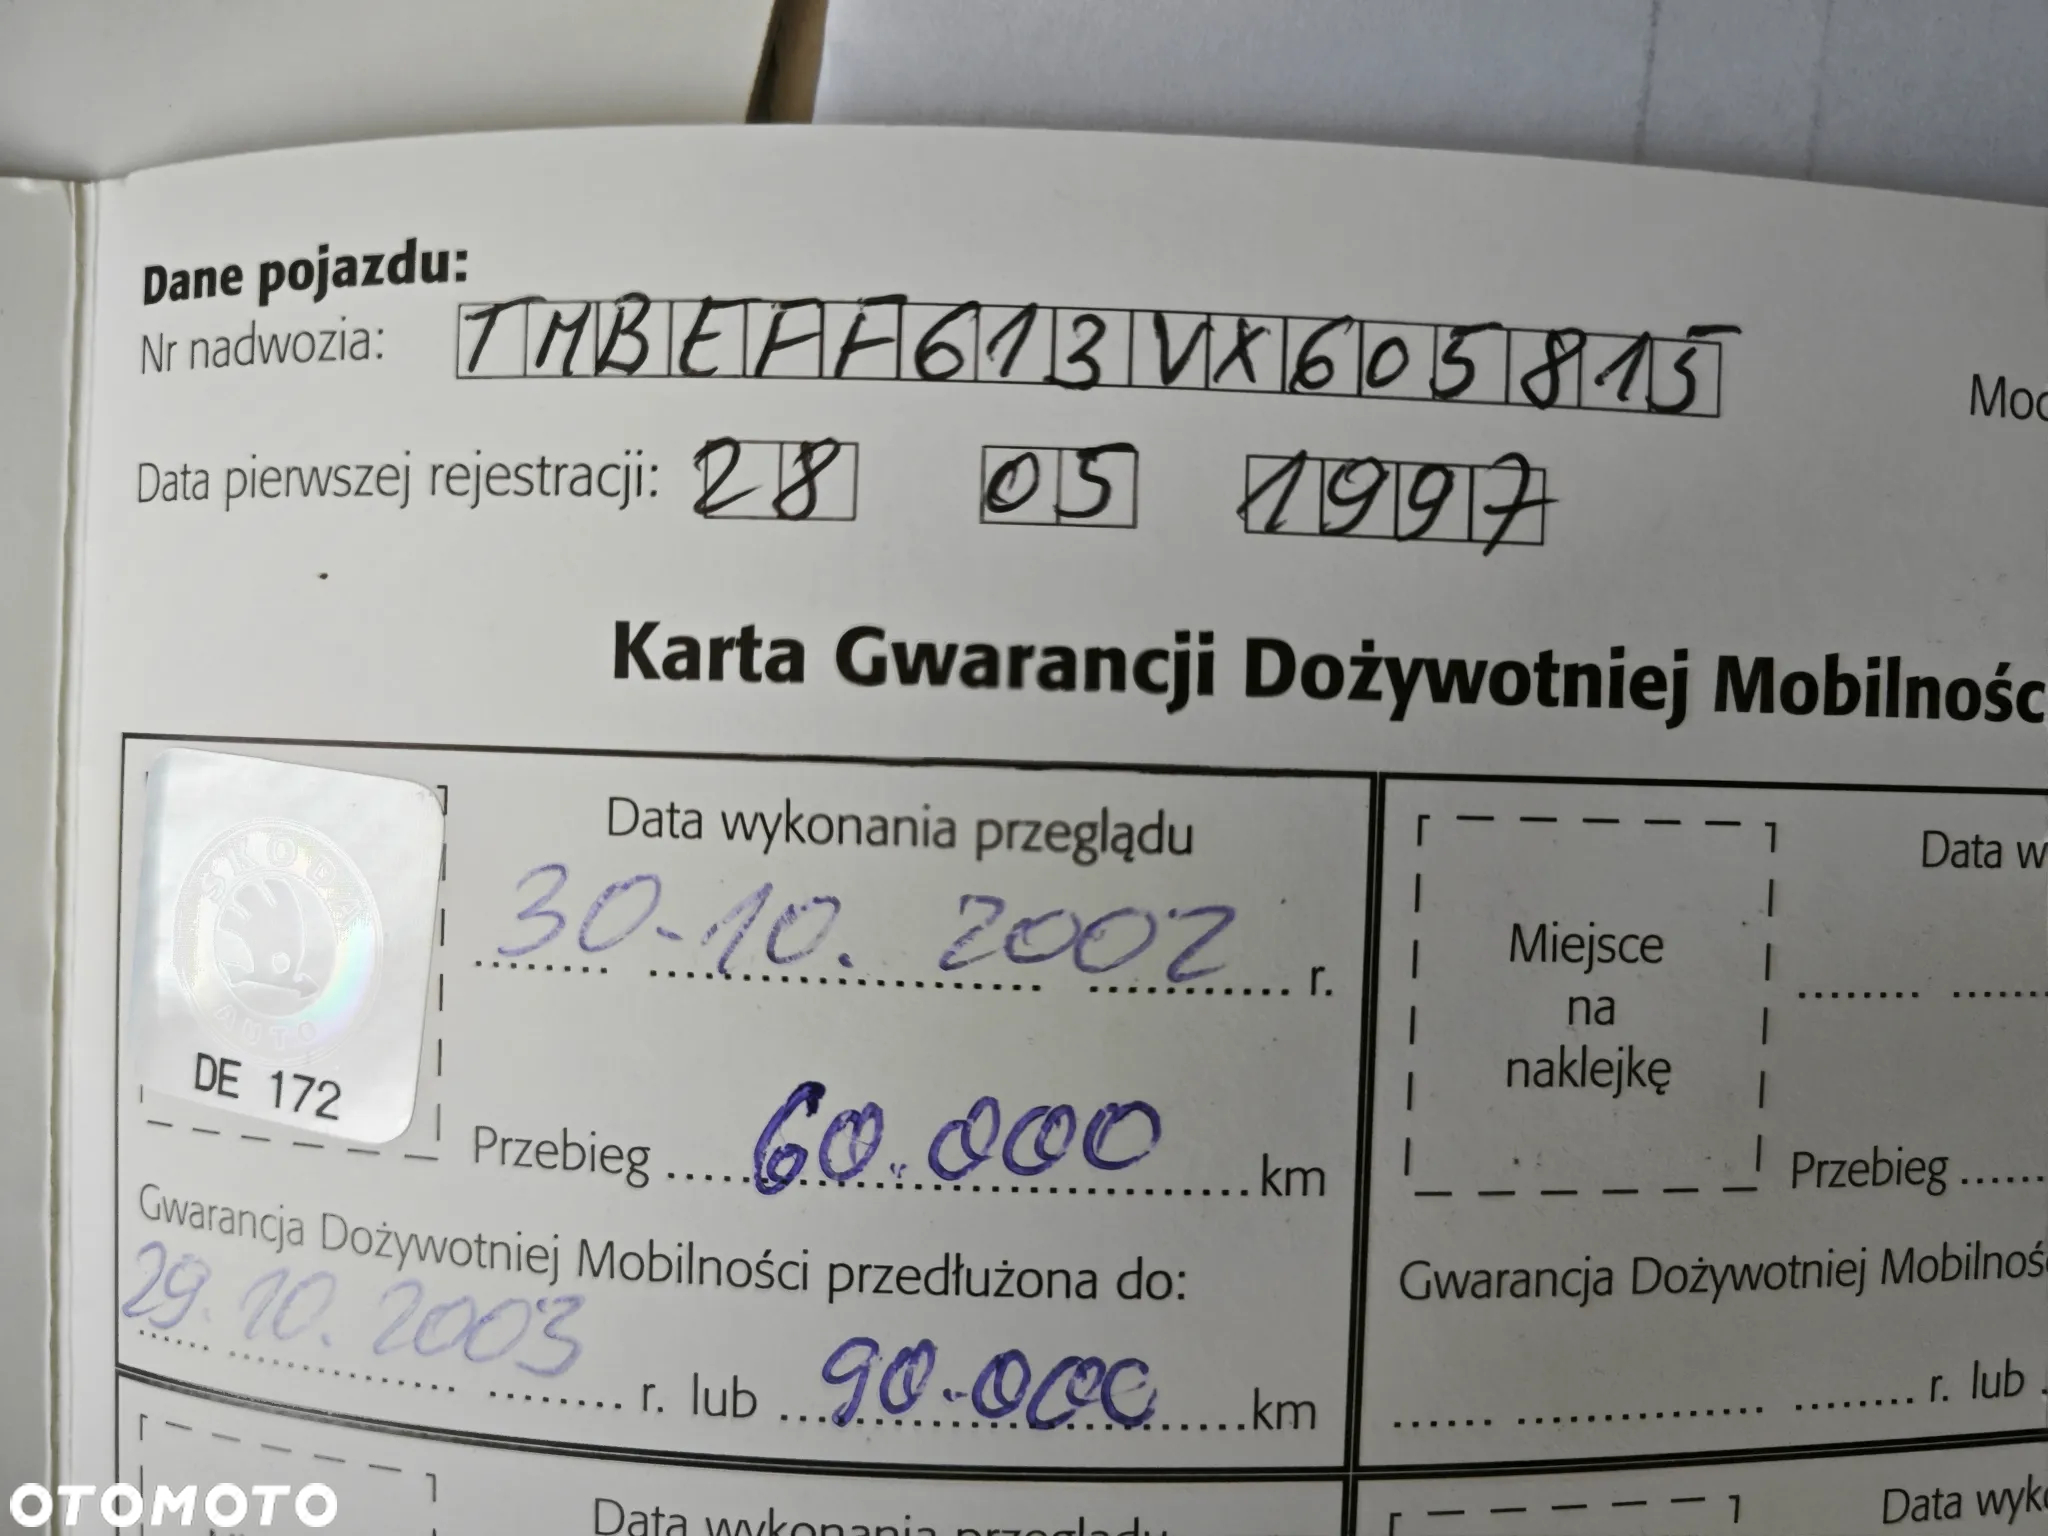 Dane pojazdu:
Nr nadwozia: TMBEFF613VX605815
Moc
Data pierwszej rejestracji: 28 05 1997
Karta Gwarancji Dożywotniej Mobilnośc
SKODA
AUTO
DE 172
Data wykonania przeglądu
30-10. 2002 r.
Przebieg 60.000 km
Gwarancja Dożywotniej Mobilności przedłużona do:
29. 10. 2003 r. lub 90.000 km
Data w
Miejsce
na
naklejkę
Przebieg
Gwarancja Dożywotniej Mobilnoś
r. lub
Data wykonania przeglądu
Data wyk
OTOMOTO